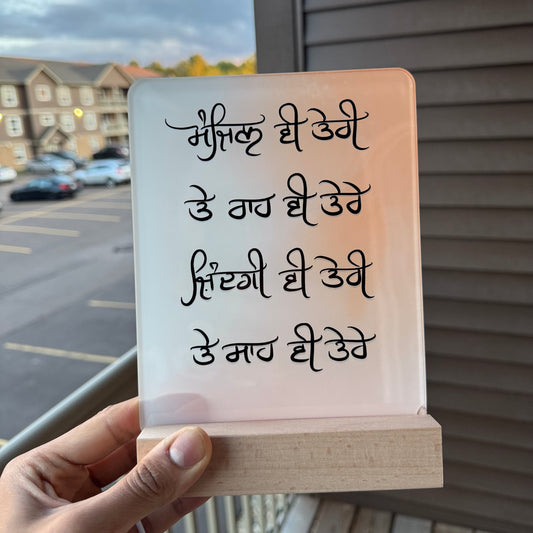 ਮੰਜ਼ਿਲ ਵੀ ਤੇਰੀ
ਤੇ ਰਾਹ ਵੀ ਤੇਰੇ
ਜ਼ਿੰਦਗੀ ਵੀ ਤੇਰੀ
ਤੇ ਸਾਹ ਵੀ ਤੇਰੇ